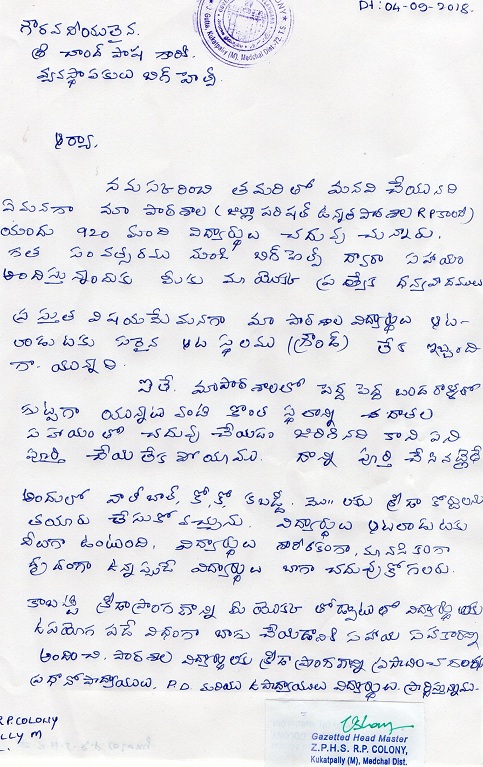 Dt: 04-09-2018.
COLONY
Kukatpally (M), Medchal Dist. 72, T.S.
గౌరవనీయులైన,
శ్రీ చాంద్ పాష గారికి,
వ్యవస్థాపకులు బిగ్ హెల్ప్
ఆర్యా,
నమస్కరించి తమరితో మనవి చేయునది
ఏమనగా మా పాఠశాల (జిల్లా పరిషత్ ఉన్నత పాఠశాల R.P కాలనీ)
యందు 920 మంది విద్యార్థులు చదువు చున్నారు.
గత సంవత్సరము నుండి బిగ్ హెల్ప్ ద్వారా సహాయం
అందిస్తున్నందుకు మీకు మా యొక్క ప్రత్యేక ధన్యవాదములు
ప్రస్తుత విషయమేమనగా మా పాఠశాల విద్యార్థులు ఆట-
లాడుటకు సరైన ఆట స్థలము (గ్రౌండ్) లేక ఇబ్బంది
గా యున్నది.
ఐతే. మా పాఠశాలలో పెద్ద పెద్ద బండరాళ్ళతో
గుట్టగా యున్నటువంటి కొంత స్థలాన్ని దాతల
సహాయంతో చదును చేయడం జరిగినది కాని పని
పూర్తి చేయలేక పోయాము. దాన్ని పూర్తి చేసినట్లైతే
అందులో వాలీబాల్, కో, కో కబడ్డీ, మొ॥ లగు క్రీడా కోర్టులను
తయారు చేసుకోవచ్చును. విద్యార్థులు ఆటలాడుటకు
వీలుగా ఉంటుంది, విద్యార్థులు శారీరకంగా, మానసికంగా
దృఢంగా ఉన్నప్పుడే విద్యార్థులు బాగా చదువుకోగలరు.
కాబట్టి క్రీడాప్రాంగణాన్ని మీ యొక్క తోడ్పాటుతో విద్యార్థులకు
ఉపయోగ పడే విధంగా బాగు చేయడానికి సహాయ సహకారాన్ని
అందించి, పాఠశాల విద్యార్థులకు క్రీడా ప్రాంగణాన్ని ప్రసాదించగలరని
ప్రధానోపాధ్యాయులు, P.D మరియు ఉపాధ్యాయులు విద్యార్థులు ప్రార్థిస్తున్నాము.
R.P.COLONY
LLY M
Gazetted Head Master
Z.P.H.S. R.P. COLONY,
Kukatpally (M), Medchal Dist.